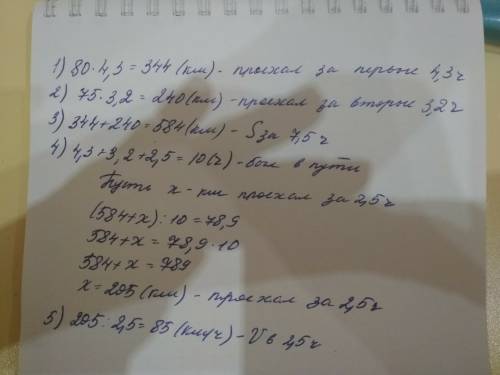 1) 80·4,3=344 (км) - проехал за первые 4,3ч
2) 75·3,2=240 (км) - проехал за вторые 3,2ч
3) 344+240=584 (км) - S за 7,5ч
4) 4,3+3,2+2,5=10 (ч) - был в пути
Пусть х - км проехал за 2,5ч
(584+х):10=78,9
584+х=78,9·10
584+х=789
х=205 (км) - проехал за 2,5ч
5) 205:2,5=85 (км/ч) - V в 2,5ч